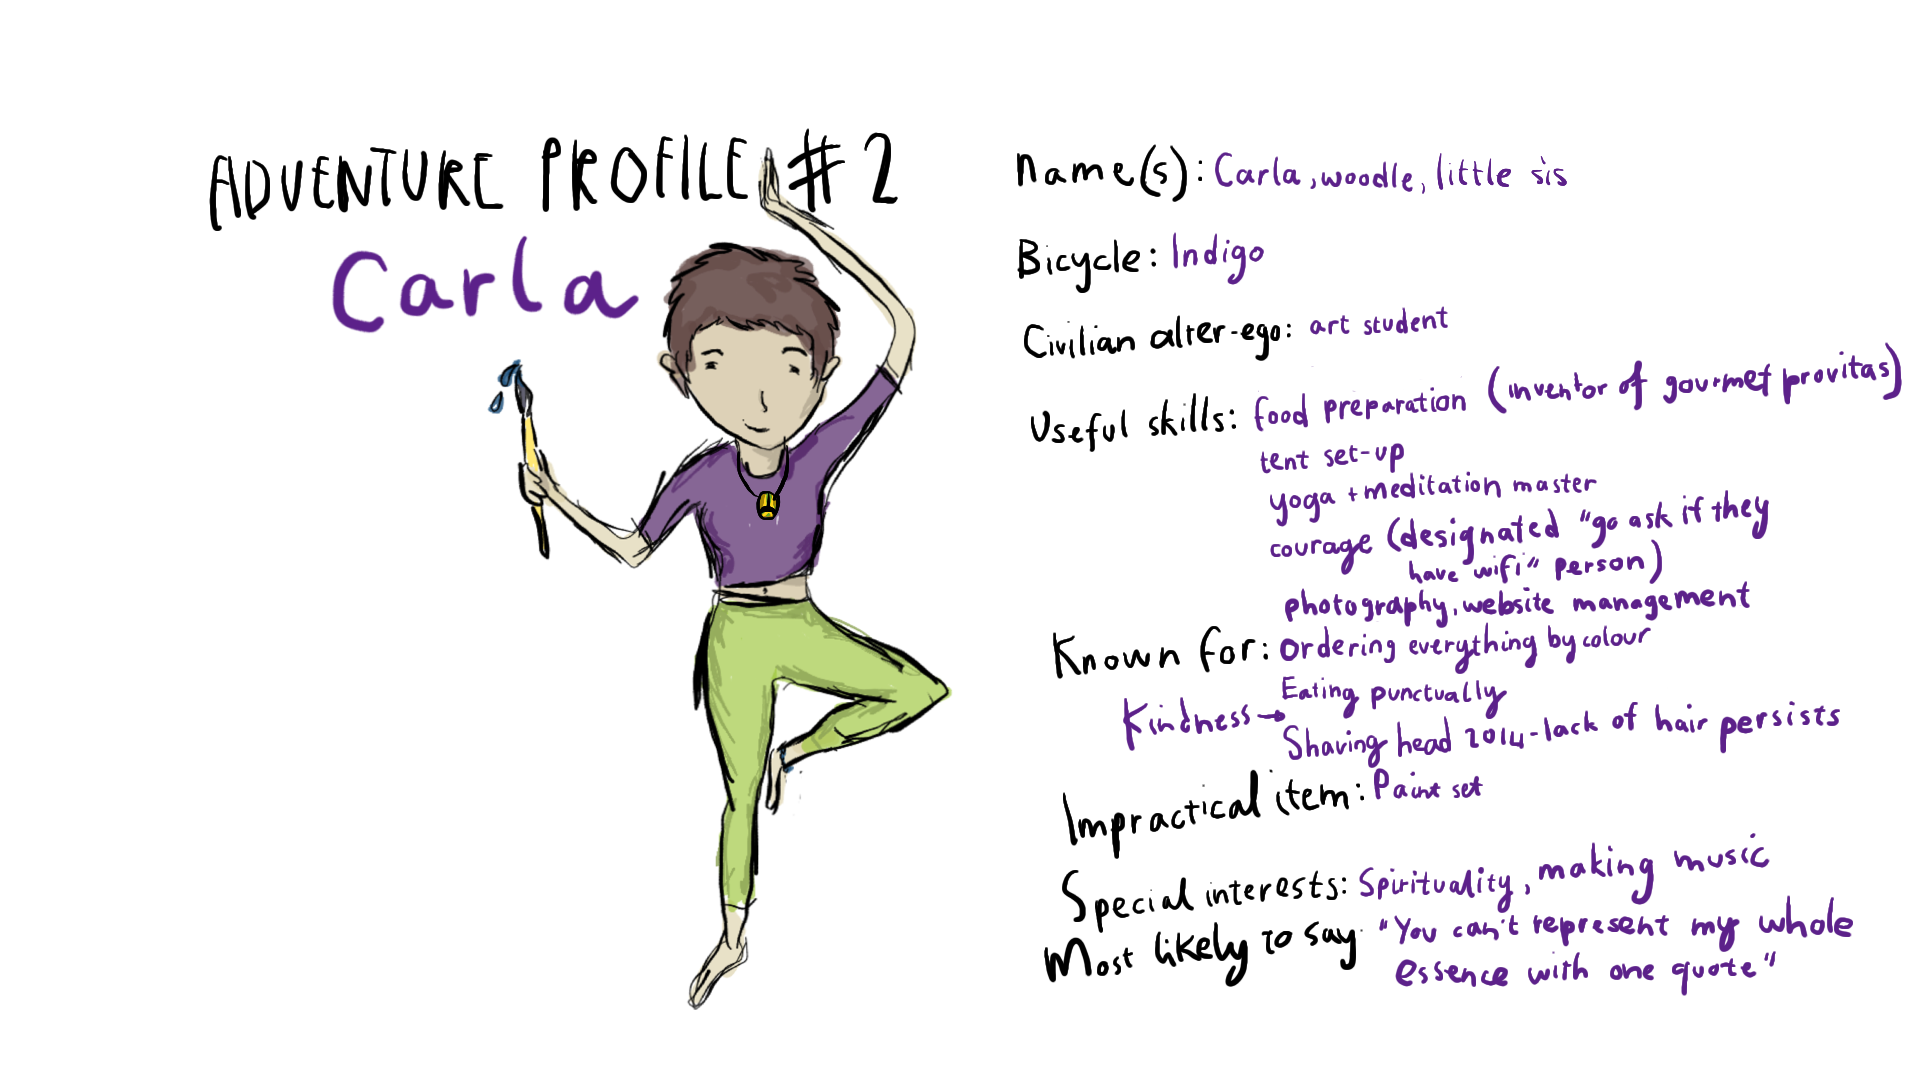 ADVENTURE PROFILE #2
Carla
name(s): Carla, woodle, little sis
Bicycle: Indigo
Civilian alter-ego: art student
Useful skills: food preparation (inventor of gourmet provitas)
tent set-up
yoga + meditation master
courage (designated "go ask if they
have wifi" person)
photography, website management
Known for: Ordering everything by colour
Eating punctually
Kindness →
Shaving head 2014 - lack of hair persists
Impractical item: Paint set
Special interests: Spirituality, making music
Most likely to say: "You can't represent my whole
essence with one quote"